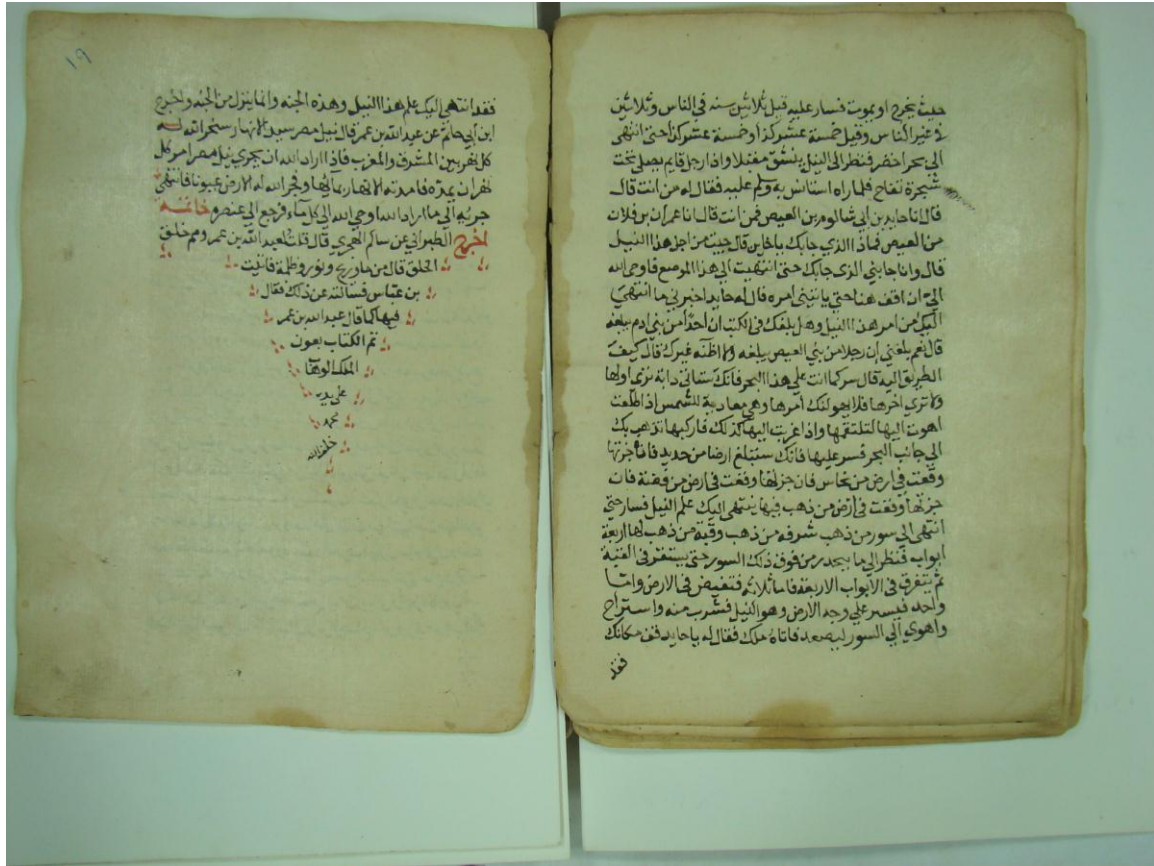 حيث يخرج او يموت فسار عليه قيل ثلاثين سنه في الناس وثلاثين
في غير الناس وقيل خمسة عشر كذا وخمسة عشر كذا حتى انتهى
الي بحر اخضر فنظر الى النيل ينشق مقبلا واذا رجل قايم يصلي تحت
شجرة تفاح فلما راه استانس به وسلم عليه فقال له من انت قال
قال انا حايد بن ابي شالوم بن العيص فمن انت قال انا عمران بن فلان
من العيص فماذا الذي جابك يا حايد قال جيت من اجل هذا النيل
قال وانا جابني الذي جابك حتى انتهيت الي هذا الموضع فاوحى الله
الي ان اقف هنا حتي ياتيني امره قال له حايد اخبرني ما انتهي
اليك من امر هذا النيل وهل بلغك في الكتب ان احدا من بني ادم يبلغه
قال نعم بلغني ان رجلا من بني العيص يبلغه ولا اظنه غيرك قال كيف
الطريق اليه قال سر كما انت علي هذا البحر فانك ستاتي دابة تري اولها
ولا تري اخرها فلا يهولنك امرها وهي معادية للشمس اذا طلعت
اهوت اليها لتلتقمها واذا غربت اليها كذلك فاركبها تذهب بك
الي جانب البحر فسر عليها فانك ستبلغ ارضا من حديد فان جزتها
وقعت في ارض من نحاس فان جزتها وقعت في ارض من فضة فان
جزتها وقعت في ارض من ذهب فيها ينتهى اليك علم النيل فسار حتي
انتهى الي سور من ذهب شرفه من ذهب وقبة من ذهب لها اربعة
ابواب فنظر الي ما ينحدر من فوق ذلك السور حتى يستقر في القبة
ثم يتفرق في الابواب الاربعة فاما ثلاثه فتغيض في الارض واما
واحد فيسير علي وجه الارض وهو النيل فشرب منه واستراح
واهوي الي السور ليصعد فاتاه ملك فقال له يا حايد قف مكانك
فقد
١٩
فقد انتهي اليك علم هذا النيل وهذه الجنه وانما ينزل من الجنه واخرج
ابن ابي حاتم عن عبد الله بن عمر قال نيل مصر سيد الانهار سخر الله له
كل نهر بين المشرق والمغرب فاذا اراد الله ان يجري نيل مصر امر كل
نهر ان يمده فامدته الانهار بمائها وفجر الله له الارض عيونا فانتهي
جريه الي ما اراد الله اوحي الله الي كل ماء فرجع الي عنصره خاتمه
اخرج الطبراني عن سالم قال قلت لعبد الله بن عمر ومم خلق
الخلق قال من ماء وريح ونور وظلمة فاتيت
بن عباس فسالته عن ذلك فقال
فيها كما قال عبد الله بن عمر
تم الكتاب بعون
الملك الوهاب
علي يد
محمد
خلف الله